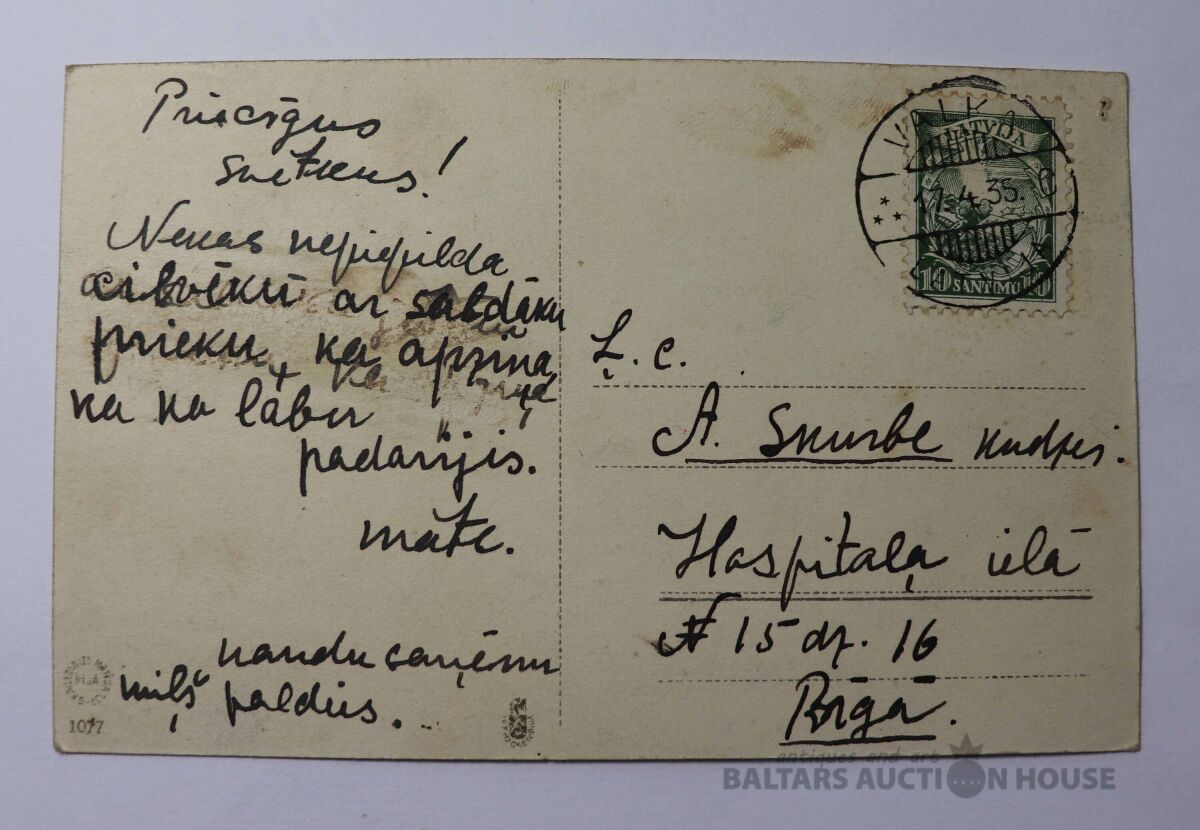 Priecīgus
svētkus!
Nekas nepiepilda
cilvēku ar saldāku
prieku, kā apziņa,
ka ko labu
padarījis.
māte.
naudu saņēmu
mīļš paldies.
1077
Ļ. c.
A. Skurbe kundzei.
Hospitaļa ielā
№ 15 dz. 16
Rīgā.
VALKA
17.4.35. C
LATVIJA
10 SANTIMU 10
antiques and art
BALTARS AUCTION HOUSE